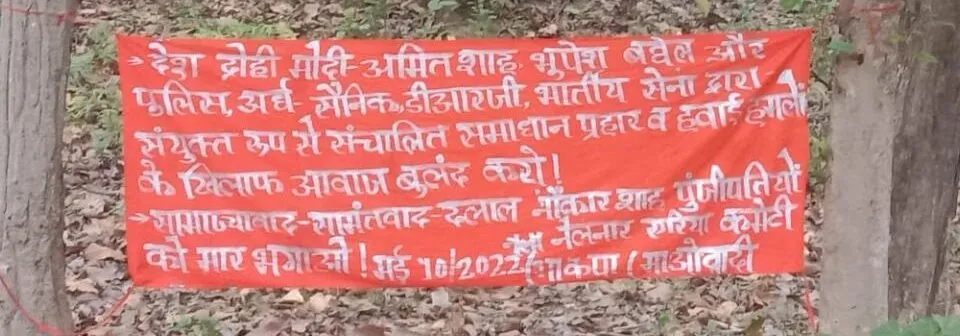 →देश द्रोही मोदी-अमित शाह, भुपेश बघेल और
पुलिस, अर्ध- सैनिक, डीआरजी, भारतीय सेना द्वारा -
संयुक्त रूप से संचालित समाधान प्रहार व हवाई हमलों
के खिलाफ आवाज बुलंद करो!
→साम्राज्यवाद-सामंतवाद-दलाल नौकरशाह पुंजीपतियों
को मार भगाओ! मई 10/2022 नेलनार एरिया कमेटी
भाकपा (माओवादी